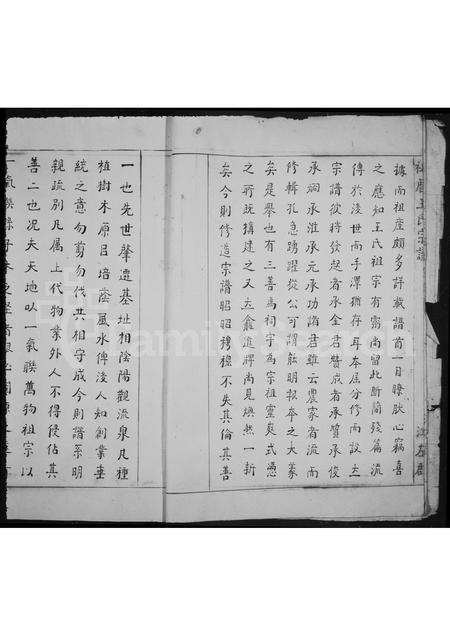 王氏宗譜
據而祖産頗多詳載譜首一目瞭肰心竊喜
之應知王氏祖宗有靈尚留此斷簡殘編流
傳於後世而手澤猶存耳本届分修而設立
宗譜彼時發起者承金君賛成者承質承俊
承嗣承淮承元承功諸君雖云農家者流而
修輯孔急踴躍從公可謂能明報本之大義
矣是舉也有三善焉祠宇為宗祖靈爽式憑
之所既搆建之又立龕道牌尚見煥然一新
矣今則修造宗譜昭昭穆穆不失其倫其善
一也先世肇遷基址相陰陽觀流泉凡種
植樹木原㠯培蔭風水俾後人知創業垂
統之意勿剪勿伐共相守成今則譜系明
親疏別凡屬上代物業外人不得侵佔其
善二也况夫天地㠯一氣聯萬物祖宗㠯
一氣聯孫子